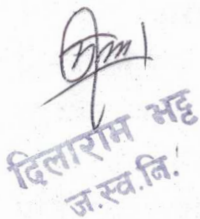 दिलाराम भट्ट
ज.स्व.नि.